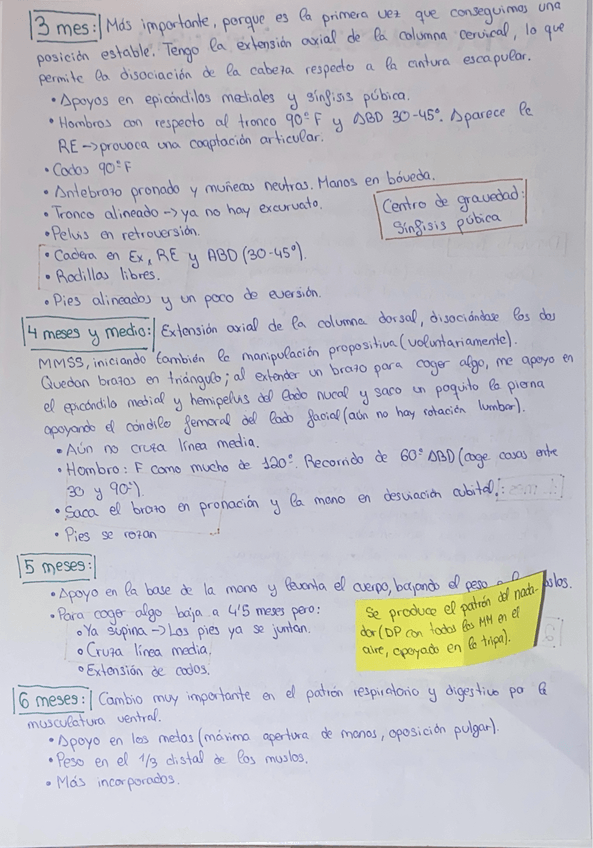 3 mes: Más importante, porque es la primera vez que conseguimos una
posición estable. Tengo la extensión axial de la columna cervical, lo que
permite la disociación de la cabeza respecto a la cintura escapular.
• Apoyos en epicóndilos mediales y sínfisis púbica.
• Hombros con respecto al tronco 90º F y ABD 30-45º. Aparece la
RE -> provoca una coaptación articular.
• Codos 90º F
• Antebrazo pronado y muñecas neutras. Manos en bóveda.
• Tronco alineado -> ya no hay excurvato.
• Pelvis en retroversión.
Centro de gravedad:
Sínfisis púbica
• Cadera en Ex, RE y ABD (30-45º).
• Rodillas libres.
• Pies alineados y un poco de eversión.
4 meses y medio: Extensión axial de la columna dorsal, disociándose los dos
MMSS, iniciando también la manipulación propositiva (voluntariamente).
Quedan brazos en triángulo; al extender un brazo para coger algo, me apoyo en
el epicóndilo medial y hemipelvis del lado nucal y saco un poquito la pierna
apoyando el cóndilo femoral del lado facial (aún no hay rotación lumbar).
• Aún no cruza línea media.
• Hombro: F como mucho de 120º. Recorrido de 60º ABD (coge cosas entre
30 y 90º).
• Saca el brazo en pronación y la mano en desviación cubital.
• Pies se rozan
5 meses:
• Apoyo en la base de la mano y levanta el cuerpo, bajando el peso
• Para coger algo baja a 4'5 meses pero:
o Ya supina -> Los pies ya se juntan.
o Cruza línea media.
o Extensión de codos.
Se produce el patrón del nada-
dor (DP con todos los MM en el
aire, apoyado en la tripa).
6 meses: Cambio muy importante en el patrón respiratorio y digestivo por la
musculatura ventral.
• Apoyo en los metas (máxima apertura de manos, oposición pulgar).
• Peso en el 1/3 distal de los muslos.
• Más incorporados.